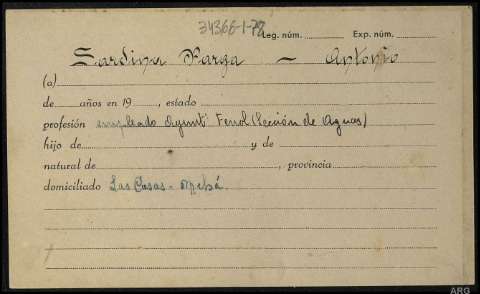 34366-1-78
Leg. núm. Exp. núm.
Sardina Varga - Antonio
(a)
de años en 19, estado
profesión empleado Ayunt Ferrol (Sección de Aguas)
hijo de y de
natural de, provincia
domiciliado Las Casas -
ARG